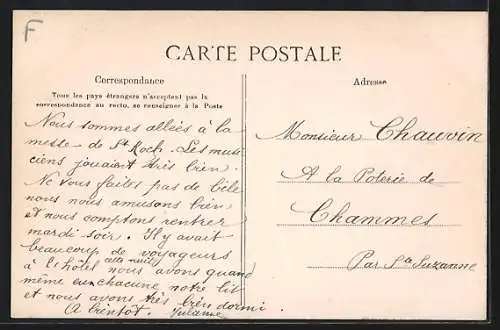 F
CARTE POSTALE
Correspondance
Tous les pays étrangers n'acceptent pas la
correspondance au recto, se renseigner à la Poste
Nous sommes allées à la
messe de St Roch. Les musi
ciens jouaient très bien.
Ne vous faites pas de bile
nous nous amusons bien
et nous comptons rentrer
mardi soir. Il y avait
beaucoup de voyageurs
cette nuit
à l'hôtel nous avons quand
même eu chacune notre lit
et nous avons très bien dormi
A bientôt. Julienne
Adresse
Monsieur Chauvin
A la Poterie de
Chammes
Par Ste Suzanne